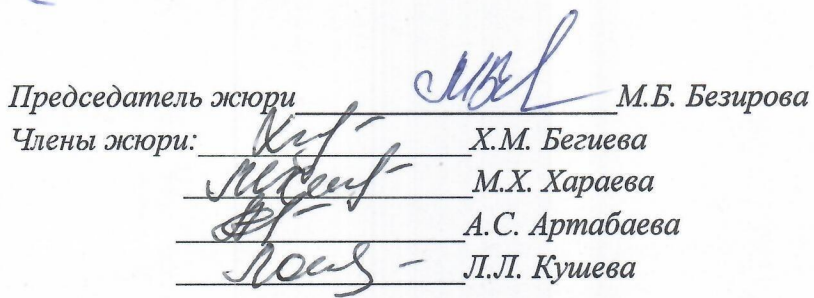 Председатель жюри М.Б. Безирова
Члены жюри: Х.М. Бегиева
М.Х. Хараева
А.С. Артабаева
Л.Л. Кушева